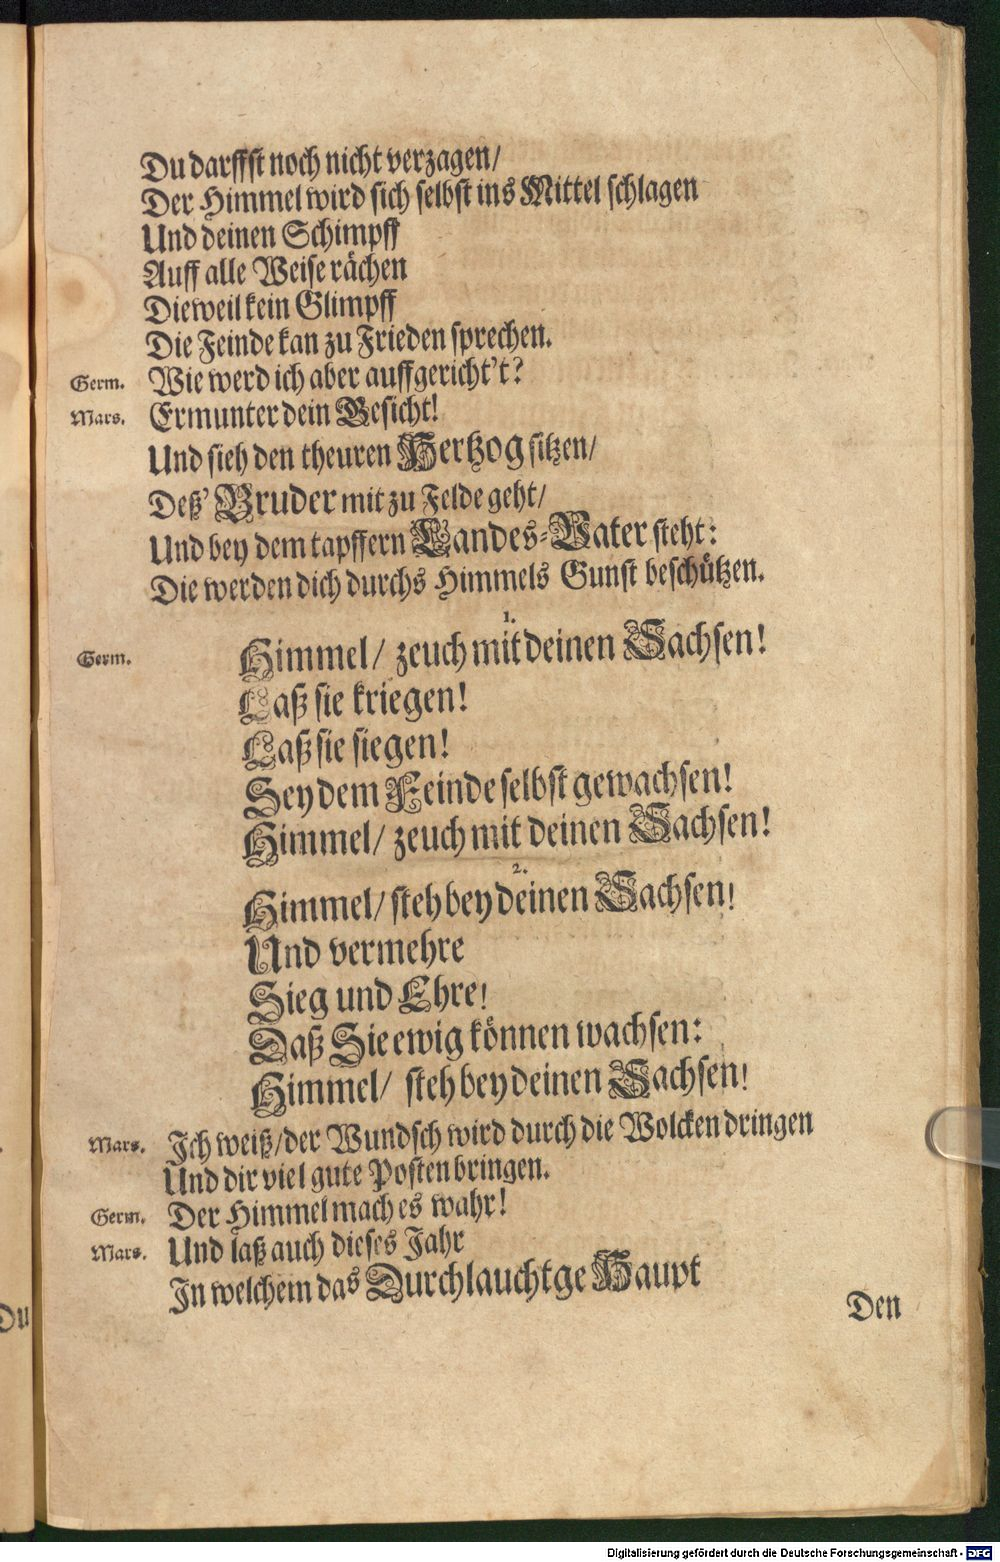 Du darffst noch nicht verzagen/
Der Himmel wird sich selbst ins Mittel schlagen
Und deinen Schimpff
Auff alle Weise rächen
Dieweil kein Glimpff
Die Feinde kan zu Frieden sprechen.
Germ. Wie werd ich aber auffgericht't?
Mars. Ermunter dein Gesicht!
Und sieh den theuren Hertzog sitzen/
Deß' Bruder mit zu Felde geht/
Und bey dem tapffern Landes-Vater steht:
Die werden dich durchs Himmels Gunst beschützen.
1.
Germ. Himmel/ zeuch mit deinen Sachsen!
Laß sie kriegen!
Laß sie siegen!
Sey dem Feinde selbst gewachsen!
Himmel/ zeuch mit deinen Sachsen!
2.
Himmel/ steh bey deinen Sachsen!
Und vermehre
Sieg und Ehre!
Daß Sie ewig können wachsen:
Himmel/ steh bey deinen Sachsen!
Mars. Ich weiß/ der Wundsch wird durch die Wolcken dringen
Und dir viel gute Posten bringen.
Germ. Der Himmel mach es wahr!
Mars. Und laß auch dieses Jahr
In welchem das Durchlauchtge Haupt
Den
Du
Digitalisierung gefördert durch die Deutsche Forschungsgemeinschaft - DFG